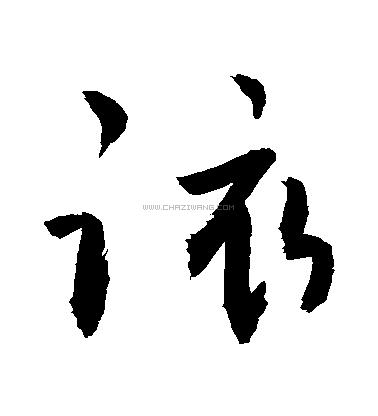 该
WWW.CHAZIWANG.COM